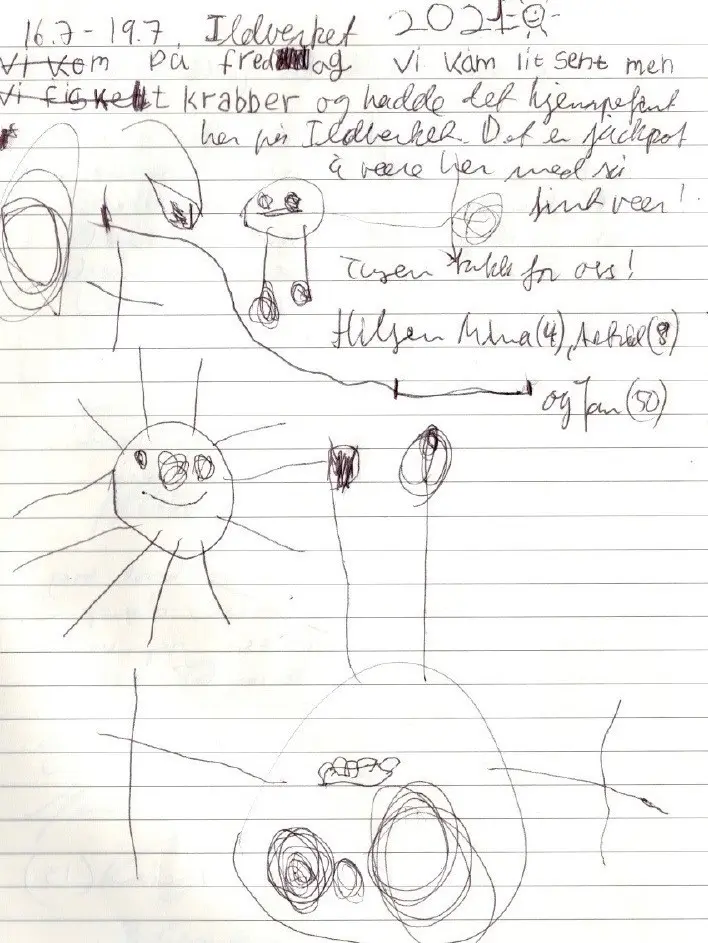 16.7 - 19.7. Ildverket 2021
Vi kom på fredag Vi kom lit sent men
Vi fisket krabber og hadde det kjempefint
her på Ildverket. Det er jackpot
å være her med så
fint veer!
Tusen takk for oss!
Hilsen (4), (8)
og Jan (50)